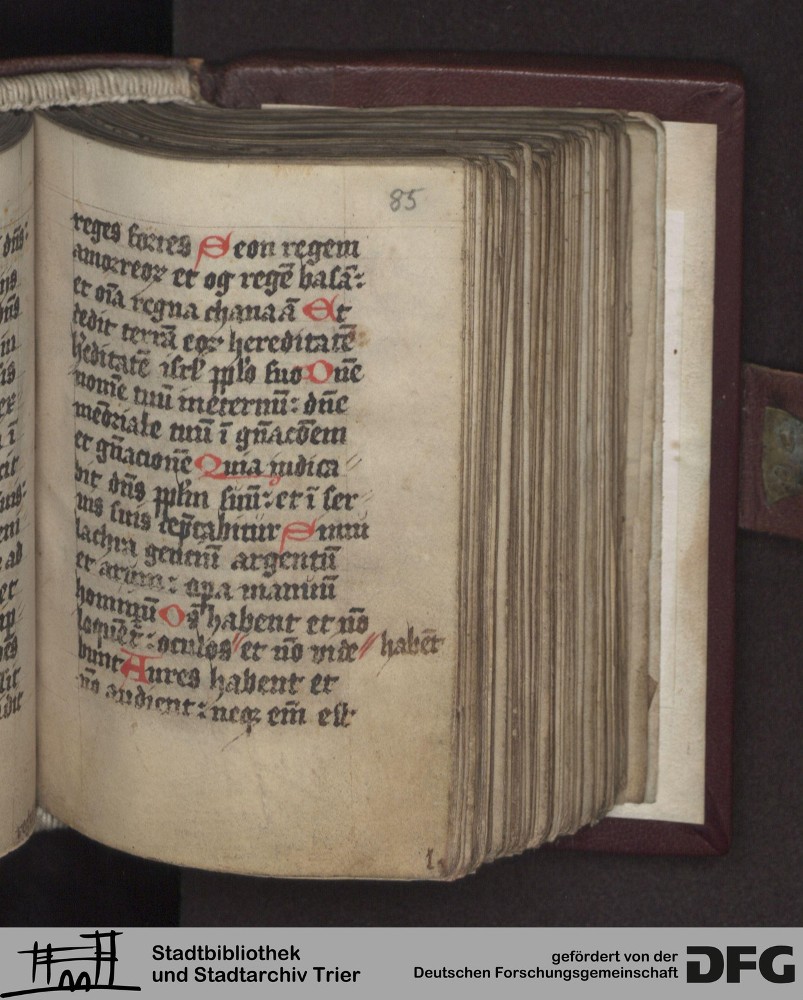 85
reges fortes Seon regem
amorreoꝝ et og regē basā:
et oīa regna chanaā Et
dedit terrā eoꝝ hereditatē
h̓editatē isrl̓ ppl̓o suo One
nomē tuū ineternū: dn̄e
mēoriale tuū ī gn̄acōem
et gn̄acionē Quia iudica
bit dn̄s ppl̓m suū: et ī ser
uis suis dep̄cabitur Simu
lachra genciū argentū
et aurum: opa manuū
hominū Os habent et nō
loquēt̄: oculos" et nō vide" habēt
bunt Aures habent et
nō audient: neqꝫ em̄ est
Stadtbibliothek
und Stadtarchiv Trier
gefördert von der
Deutschen Forschungsgemeinschaft
DFG